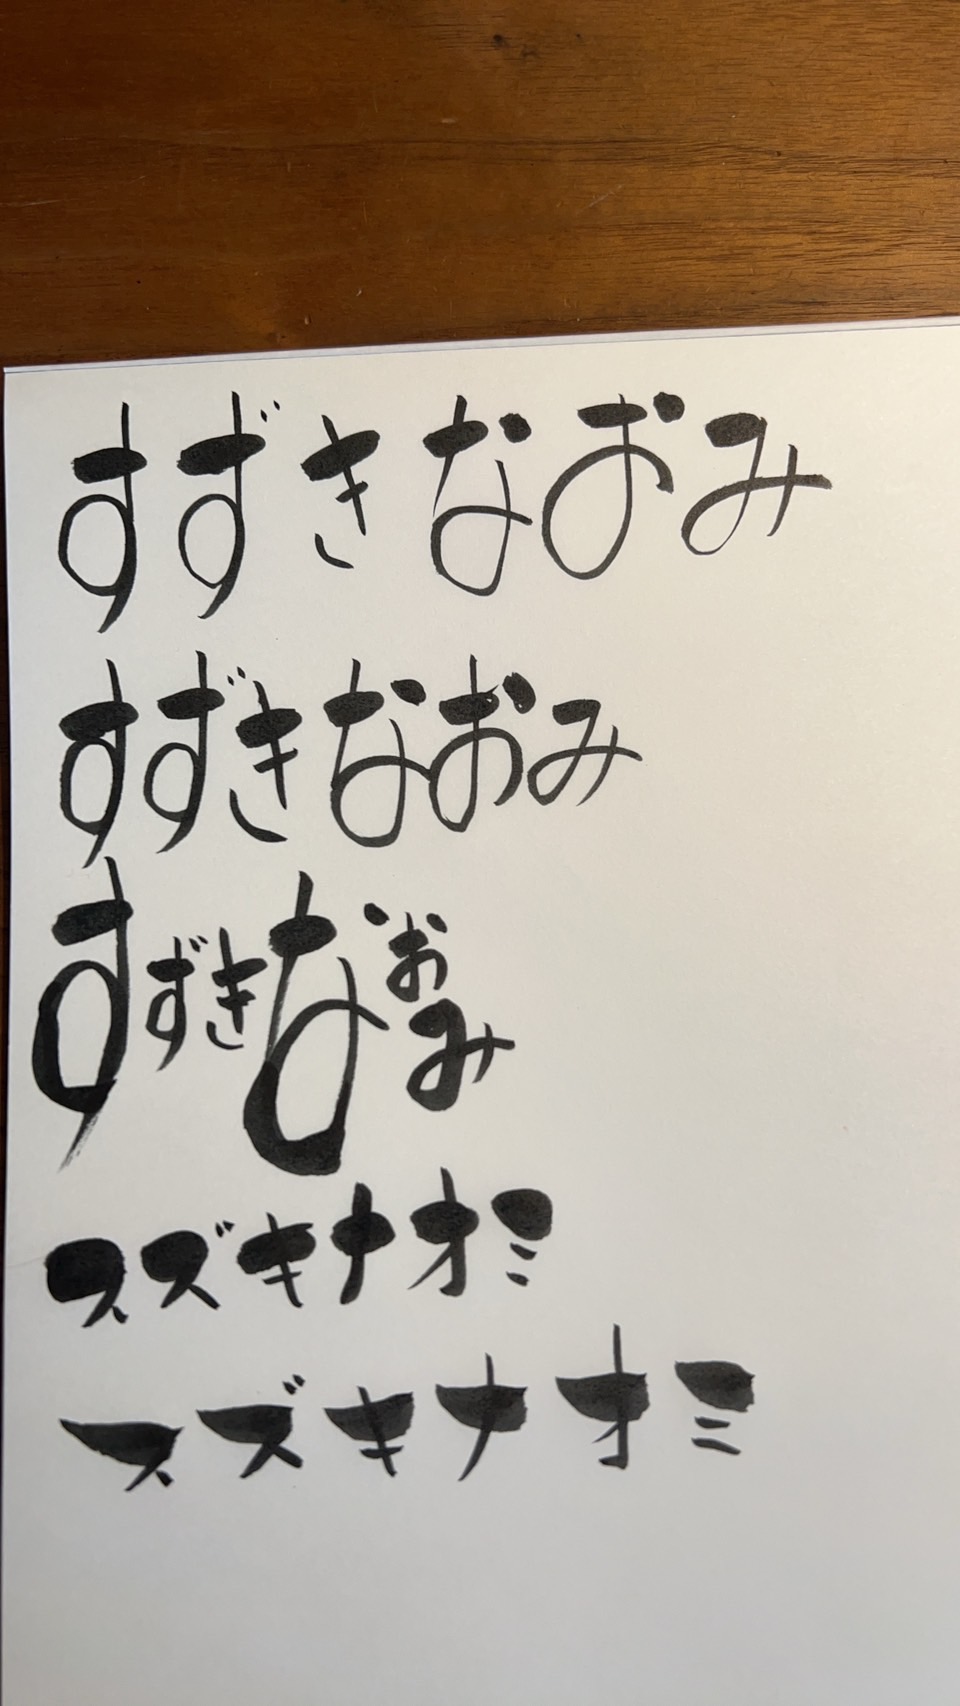 すずきなおみ
すずきなおみ
すずきなおみ
スズキナオミ
スズキナオミ